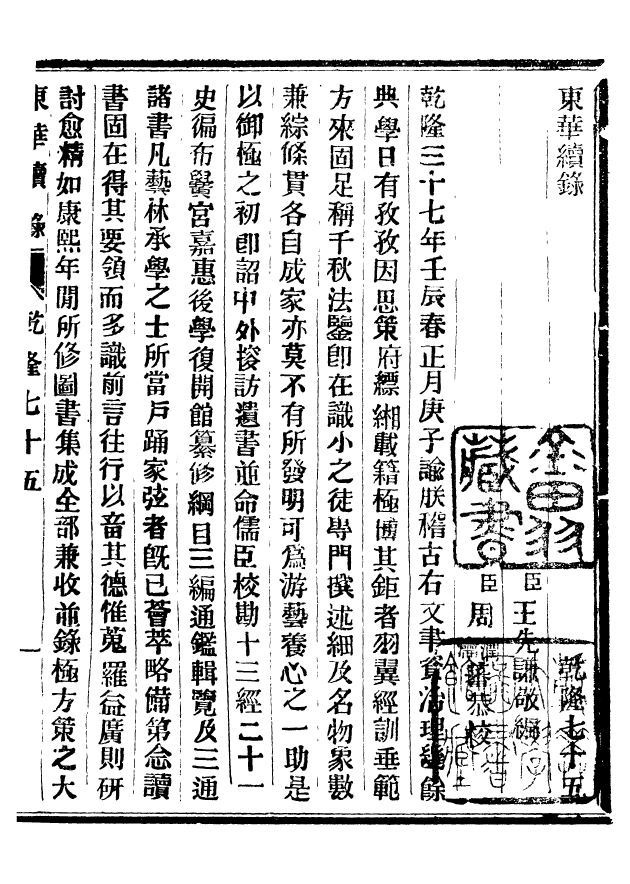 東華續錄
乾隆七十五
臣王先謙敬編
臣周潤蕃恭校
乾隆三十七年壬辰春正月庚子諭朕稽古右文聿資治理幾餘
典學日有孜孜因思策府縹緗載籍極博其鉅者羽翼經訓垂範
方來固足稱千秋法鑒卽在識小之徒專門撰述細及名物象數
兼綜條貫各自成家亦莫不有所發明可爲游藝養心之一助是
以御極之初卽詔中外搜訪遺書並命儒臣校勘十三經二十一
史徧布黌宮嘉惠後學復開館纂修綱目三編通鑑輯覽及三通
諸書凡藝林承學之士所當戶誦家弦者旣已薈萃略備第念讀
書固在得其要領而多識前言往行以畜其德惟蒐羅益廣則研
討愈精如康熙年閒所修圖書集成全部兼收並錄極方策之大
東華續錄 乾隆七十五
一
藏書